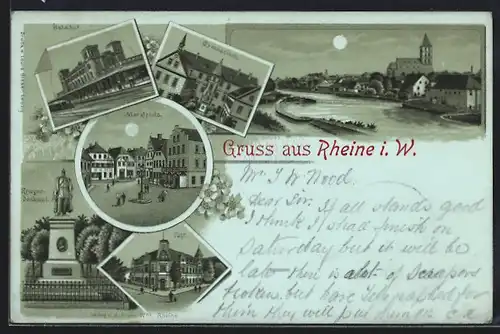 Bahnhof
Gymnasium
Marktplatz
Krieger-
Denkmal
Post
Gruss aus Rheine i. W.
Mr J W Wood
Dear Sir. If all stands good
I think I shall finish on
Saturday but it will be
late then is a lot of scrapers
broken, but have Telegraphed for
them they will